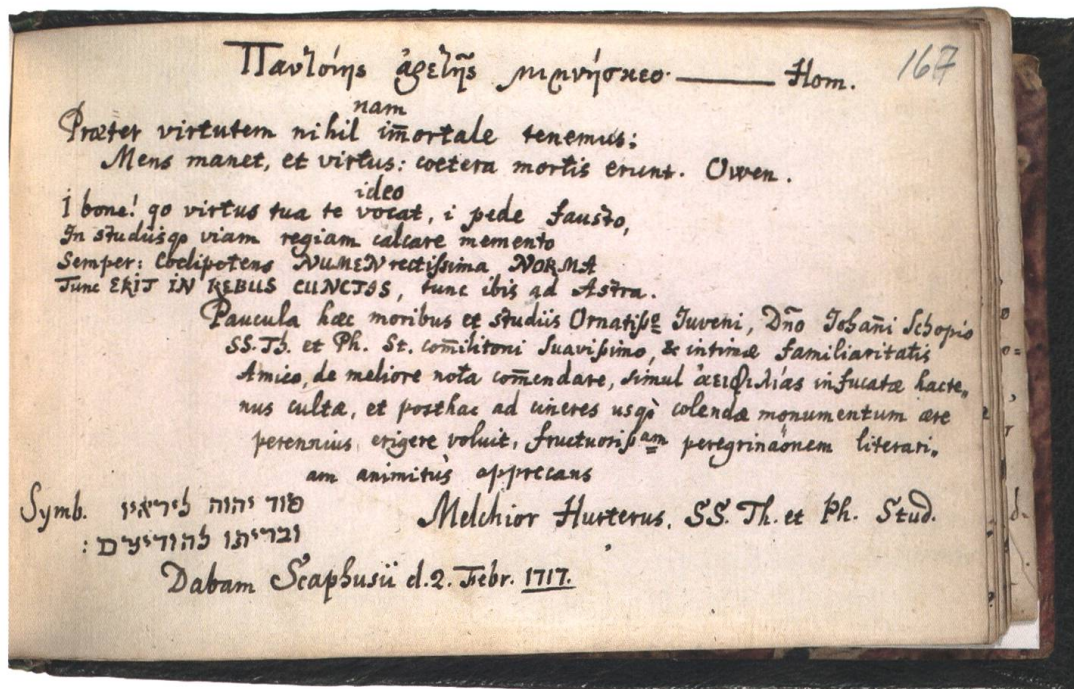 Παντοίης ἀρετῆς μιμνήσκεο. ——— Hom. 167
nam
Præter virtutem nihil im̄ortale tenemus:
Mens manet, et virtus: cœtera mortis erunt. Owen.
ideo
I bone! qo virtus tua te vocat, i pede fausto,
In studiisqȝ viam regiam calcare memento
Semper: Cœlipotens NUMEN rectissima NORMA
Tunc ERIT IN REBUS CUNCTIS, tunc ibis ad Astra.
Paucula hæc moribus et studiis Ornatißo Iuveni, Dn̄o Iohan̄i Schopio
SS. Th. et Ph. St. com̄ilitoni suavißimo, & intimæ familiaritatis
Amico, de meliore nota com̄endare, simul ἀειφιλίας infucatæ hacte„
nus cultæ, et posthac ad cineres usqȝ colendæ monumentum ære
perennius erigere voluit, fructuosißam peregrinaōnem literari„
am animitùs apprecans
Symb. סוד יהוה ליראיו
ובריתו להודיעם :
Melchior Hurterus, SS. Th. et Ph. Stud.
Dabam Scaphusii d. 2. Febr. 1717.